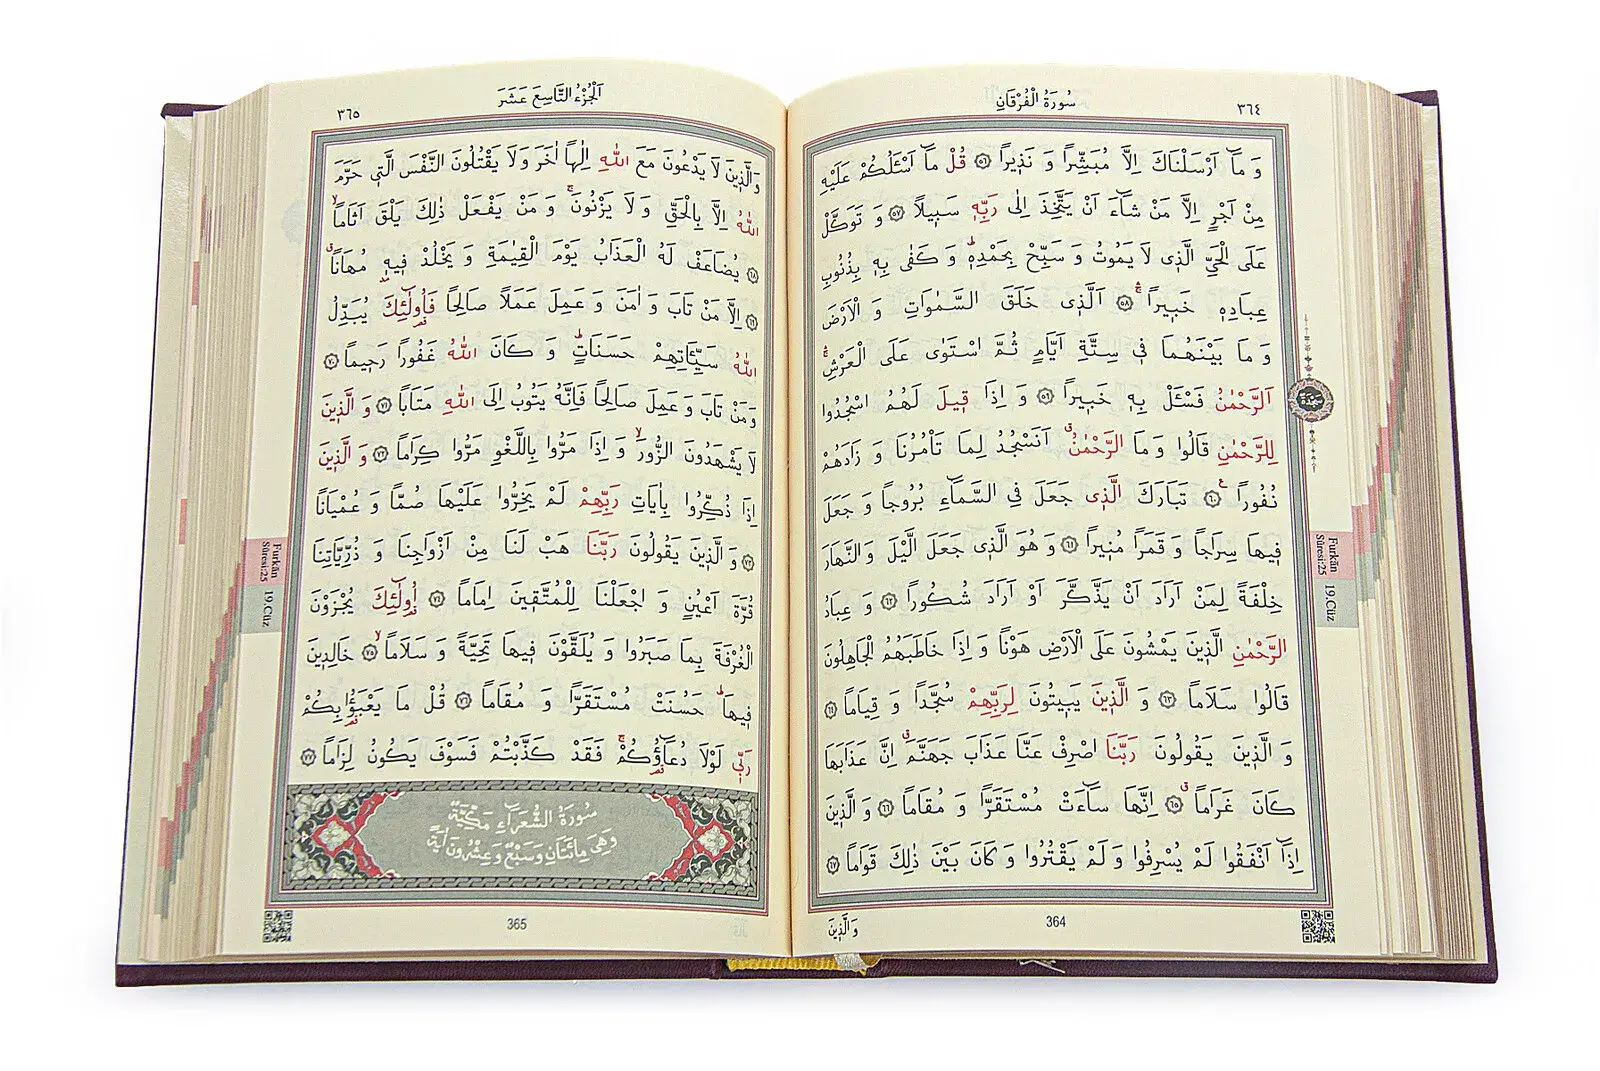 ٣٦٤
سُورَةُ الْفُرْقَانِ
وَ مَٓا اَرْسَلْنَاكَ اِلَّا مُبَشِّرًا وَ نَذ۪يرًا ﴿٥٦﴾ قُلْ مَٓا اَسْـَٔلُكُمْ عَلَيْهِ
مِنْ اَجْرٍ اِلَّا مَنْ شَٓاءَ اَنْ يَتَّخِذَ اِلٰى رَبِّه۪ سَب۪يلًا ﴿٥٧﴾ وَ تَوَكَّلْ
عَلَى الْحَيِّ الَّذ۪ي لَا يَمُوتُ وَ سَبِّحْ بِحَمْدِه۪ۜ وَ كَفٰى بِه۪ بِذُنُوبِ
عِبَادِه۪ خَب۪يرًاۚۛ ﴿٥٨﴾ اَلَّذ۪ي خَلَقَ السَّمٰوَاتِ وَ الْاَرْضَ
وَ مَا بَيْنَهُمَا ف۪ي سِتَّةِ اَيَّامٍ ثُمَّ اسْتَوٰى عَلَى الْعَرْشِۚۛ
اَلرَّحْمٰنُ فَسْـَٔلْ بِه۪ خَب۪يرًا ﴿٥٩﴾ وَ اِذَا ق۪يلَ لَهُمُ اسْجُدُوا
لِلرَّحْمٰنِ قَالُوا وَ مَا الرَّحْمٰنُۗ اَنَسْجُدُ لِمَا تَأْمُرُنَا وَ زَادَهُمْ
نُفُورًا ﴿٦٠﴾ تَبَارَكَ الَّذ۪ي جَعَلَ فِي السَّمَٓاءِ بُرُوجًا وَ جَعَلَ
ف۪يهَا سِرَاجًا وَ قَمَرًا مُن۪يرًا ﴿٦١﴾ وَ هُوَ الَّذ۪ي جَعَلَ الَّيْلَ وَ النَّهَارَ
خِلْفَةً لِمَنْ اَرَادَ اَنْ يَذَّكَّرَ اَوْ اَرَادَ شُكُورًا ﴿٦٢﴾ وَ عِبَادُ
الرَّحْمٰنِ الَّذ۪ينَ يَمْشُونَ عَلَى الْاَرْضِ هَوْنًا وَ اِذَا خَاطَبَهُمُ الْجَاهِلُونَ
قَالُوا سَلَامًا ﴿٦٣﴾ وَ الَّذ۪ينَ يَب۪يتُونَ لِرَبِّهِمْ سُجَّدًا وَ قِيَامًا ﴿٦٤﴾
وَ الَّذ۪ينَ يَقُولُونَ رَبَّنَا اصْرِفْ عَنَّا عَذَابَ جَهَنَّمَۗ اِنَّ عَذَابَهَا
كَانَ غَرَامًاۗ ﴿٦٥﴾ اِنَّهَا سَٓاءَتْ مُسْتَقَرًّا وَ مُقَامًا ﴿٦٦﴾ وَ الَّذ۪ينَ
اِذَٓا اَنْفَقُوا لَمْ يُسْرِفُوا وَ لَمْ يَقْتُرُوا وَ كَانَ بَيْنَ ذٰلِكَ قَوَامًا ﴿٦٧﴾
وَ الَّذ۪ينَ
364
سجدة
Furkân
Sûresi:25
19.Cüz
اَلْجُزْءُ التَّاسِعَ عَشَرَ
٣٦٥
وَ الَّذ۪ينَ لَا يَدْعُونَ مَعَ اللّٰهِ اِلٰهًا اٰخَرَ وَ لَا يَقْتُلُونَ النَّفْسَ الَّت۪ي حَرَّمَ
اللّٰهُ اِلَّا بِالْحَقِّ وَ لَا يَزْنُونَۚ وَ مَنْ يَفْعَلْ ذٰلِكَ يَلْقَ اَثَامًاۙ
﴿٦٨﴾ يُضَاعَفْ لَهُ الْعَذَابُ يَوْمَ الْقِيٰمَةِ وَ يَخْلُدْ ف۪يه۪ مُهَانًاۗ
﴿٦٩﴾ اِلَّا مَنْ تَابَ وَ اٰمَنَ وَ عَمِلَ عَمَلًا صَالِحًا فَاُو۬لٰٓئِكَ يُبَدِّلُ
اللّٰهُ سَيِّـَٔاتِهِمْ حَسَنَاتٍۜ وَ كَانَ اللّٰهُ غَفُورًا رَح۪يمًا ﴿٧٠﴾
وَ مَنْ تَابَ وَ عَمِلَ صَالِحًا فَاِنَّهُ يَتُوبُ اِلَى اللّٰهِ مَتَابًا ﴿٧١﴾ وَ الَّذ۪ينَ
لَا يَشْهَدُونَ الزُّورَۙ وَ اِذَا مَرُّوا بِاللَّغْوِ مَرُّوا كِرَامًا ﴿٧٢﴾ وَ الَّذ۪ينَ
اِذَا ذُكِّرُوا بِاٰيَاتِ رَبِّهِمْ لَمْ يَخِرُّوا عَلَيْهَا صُمًّا وَ عُمْيَانًا
﴿٧٣﴾ وَ الَّذ۪ينَ يَقُولُونَ رَبَّنَا هَبْ لَنَا مِنْ اَزْوَاجِنَا وَ ذُرِّيَّاتِنَا
قُرَّةَ اَعْيُنٍ وَ اجْعَلْنَا لِلْمُتَّق۪ينَ اِمَامًا ﴿٧٤﴾ اُو۬لٰٓئِكَ يُجْزَوْنَ
الْغُرْفَةَ بِمَا صَبَرُوا وَ يُلَقَّوْنَ ف۪يهَا تَحِيَّةً وَ سَلَامًاۙ ﴿٧٥﴾ خَالِد۪ينَ
ف۪يهَاۜ حَسُنَتْ مُسْتَقَرًّا وَ مُقَامًا ﴿٧٦﴾ قُلْ مَا يَعْبَؤُ۬ا بِكُمْ
رَبّ۪ي لَوْلَا دُعَٓاؤُ۬كُمْۚ فَقَدْ كَذَّبْتُمْ فَسَوْفَ يَكُونُ لِزَامًا ﴿٧٧﴾
سُورَةُ الشُّعَرَٓاءِ مَكِّيَّةٌ
وَهِيَ مِائَتَانِ وَسَبْعٌ وَعِشْرُونَ اٰيَةً
365
Furkân
Sûresi:25
19.Cüz